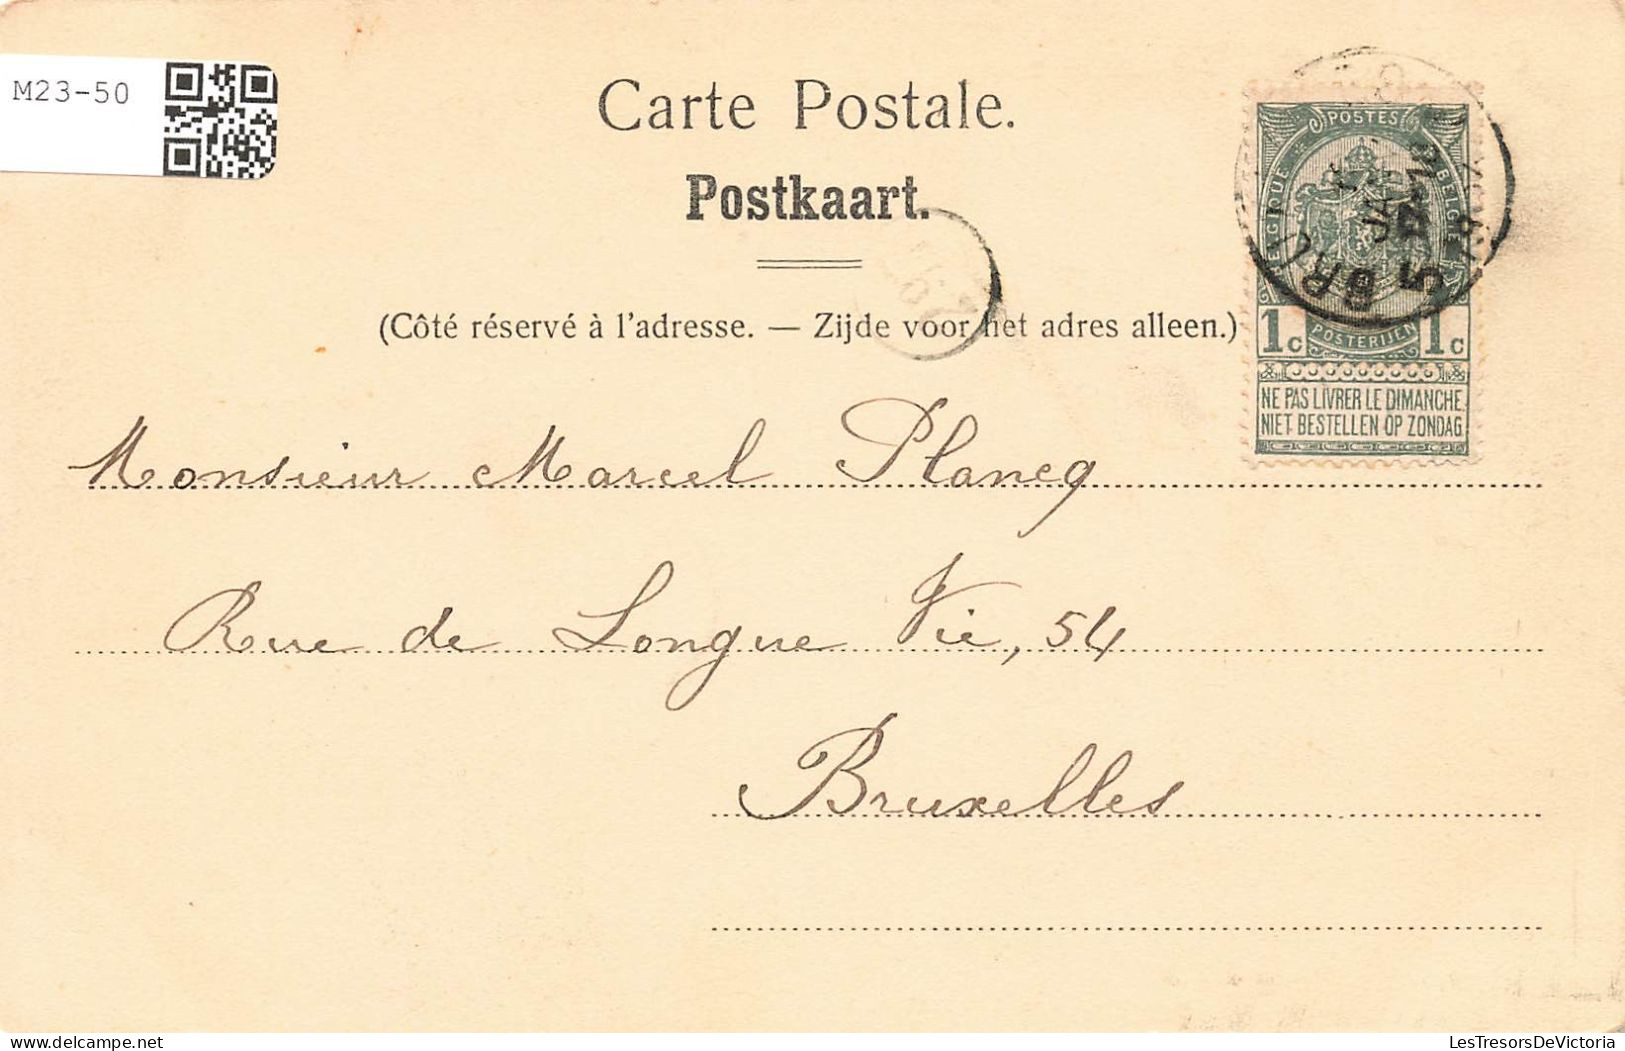 M23-50
Carte Postale.
Postkaart.
(Côté réservé à l'adresse. — Zijde voor het adres alleen.)
POSTES
BELGIQUE BELGIË
POSTERIJEN
1c 1c
NE PAS LIVRER LE DIMANCHE
NIET BESTELLEN OP ZONDAG
Monsieur Marcel Plancq
Rue de Longue Vie, 54
Bruxelles
LesTresorsDeVictoria